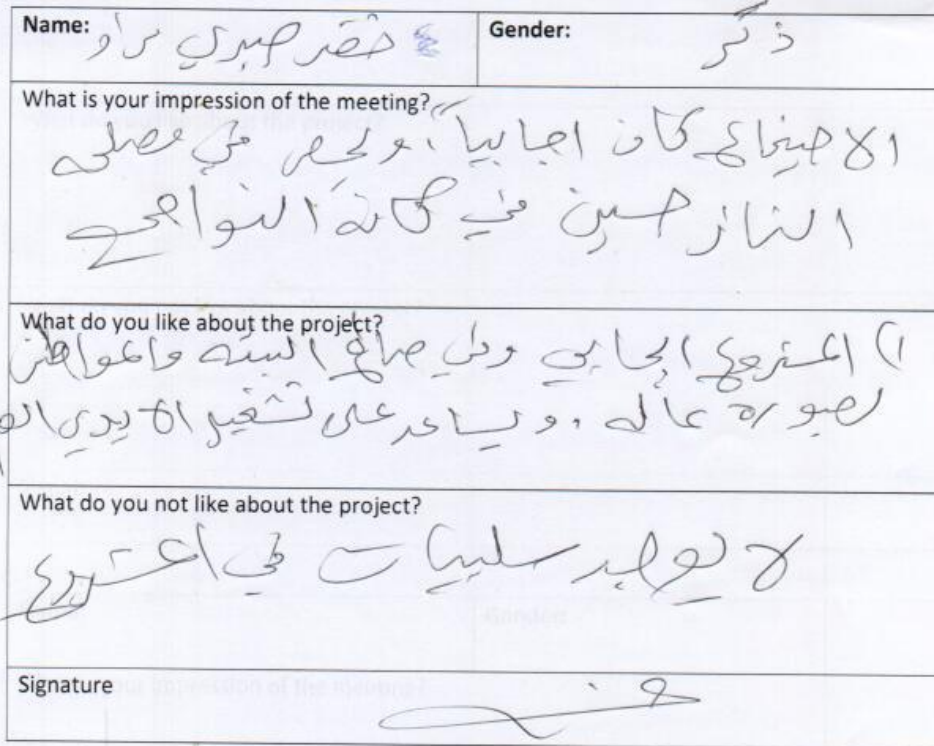 Name: خضر صبري مراد
Gender: ذكر
What is your impression of the meeting?
الاجتماع كان اجابيا، ويخص في مصلحة
النازحين في كافة النواحي
What do you like about the project?
١) المشروع ايجابي وفي صالح البيئة والمواطن
بصورة عامة، ويساعد على تشغيل الايدي
What do you not like about the project?
لا توجد سلبيات في المشروع
Signature